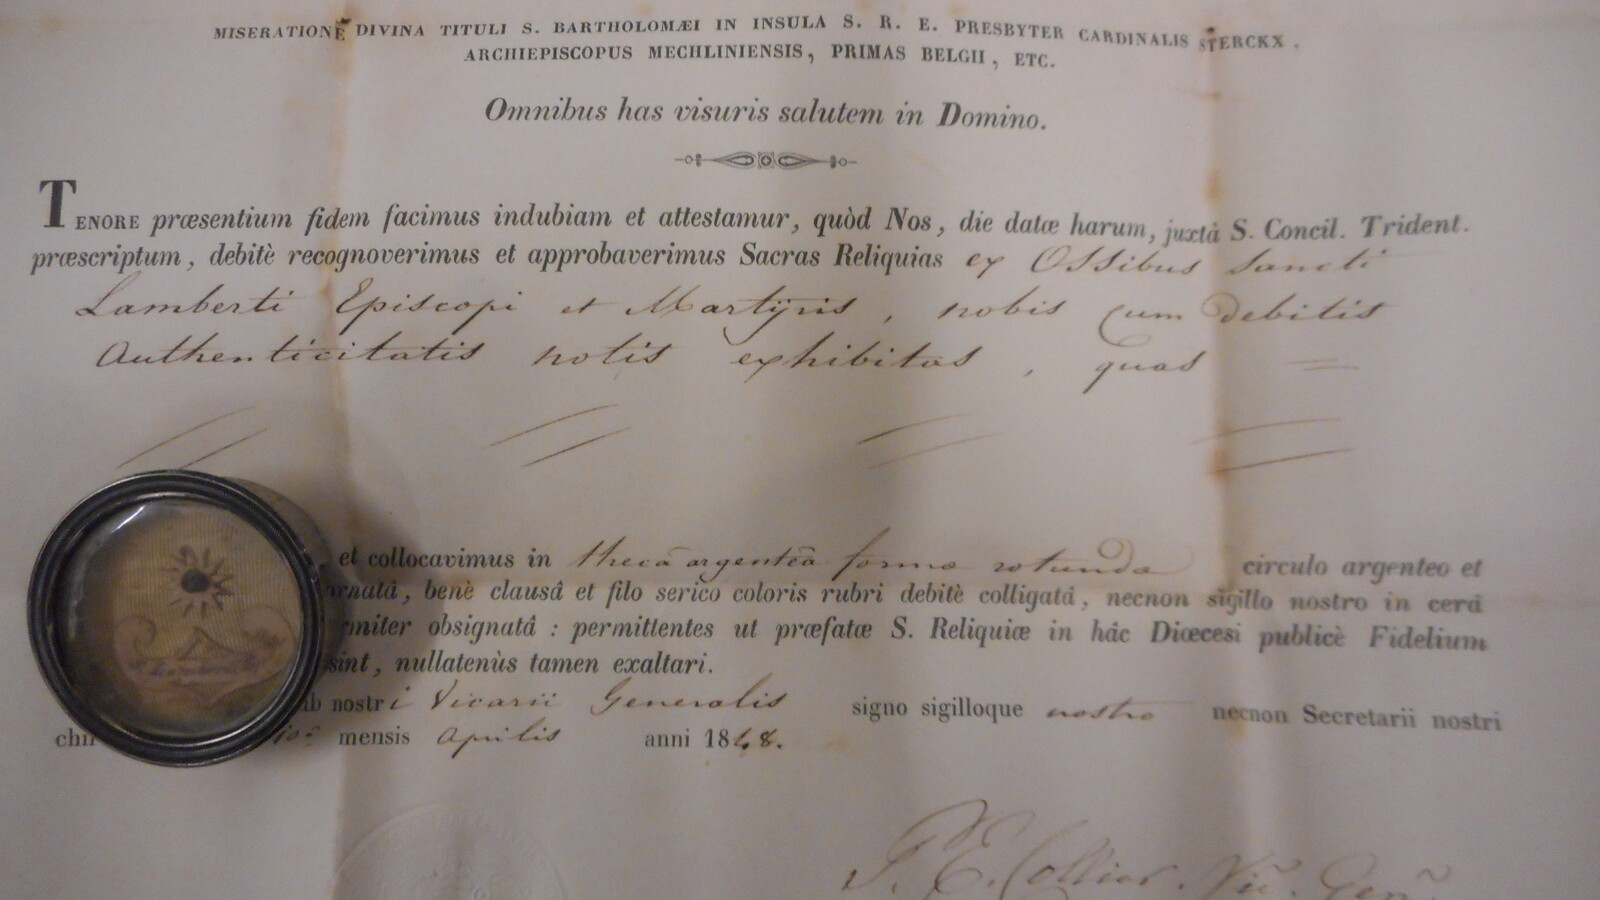 MISERATIONE DIVINA TITULI S. BARTHOLOMÆI IN INSULA S. R. E. PRESBYTER CARDINALIS STERCKX.
ARCHIEPISCOPUS MECHLINIENSIS, PRIMAS BELGII, ETC.
Omnibus has visuris salutem in Domino.
TENORE præsentium fidem facimus indubiam et attestamur, quòd Nos, die datæ harum, juxtà S. Concil. Trident.
præscriptum, debitè recognoverimus et approbaverimus Sacras Reliquias ex Ossibus Sancti
Lamberti Episcopi et Martÿris, nobis cum debitis
Authenticitatis notis exhibitas, quas =
et collocavimus in thecâ argenteâ formæ rotundæ circulo argenteo et
rnatâ, benè clausâ et filo serico coloris rubri debitè colligatâ, necnon sigillo nostro in cerâ
rmiter obsignatâ: permittentes ut præfatæ S. Reliquiæ in hâc Diœcesi publicè Fidelium
sint, nullatenùs tamen exaltari.
b nostri Vicarii Generalis signo sigilloque nostro necnon Secretarii nostri
chir mensis Aprilis anni 1848.
Collier. Vic. Gen